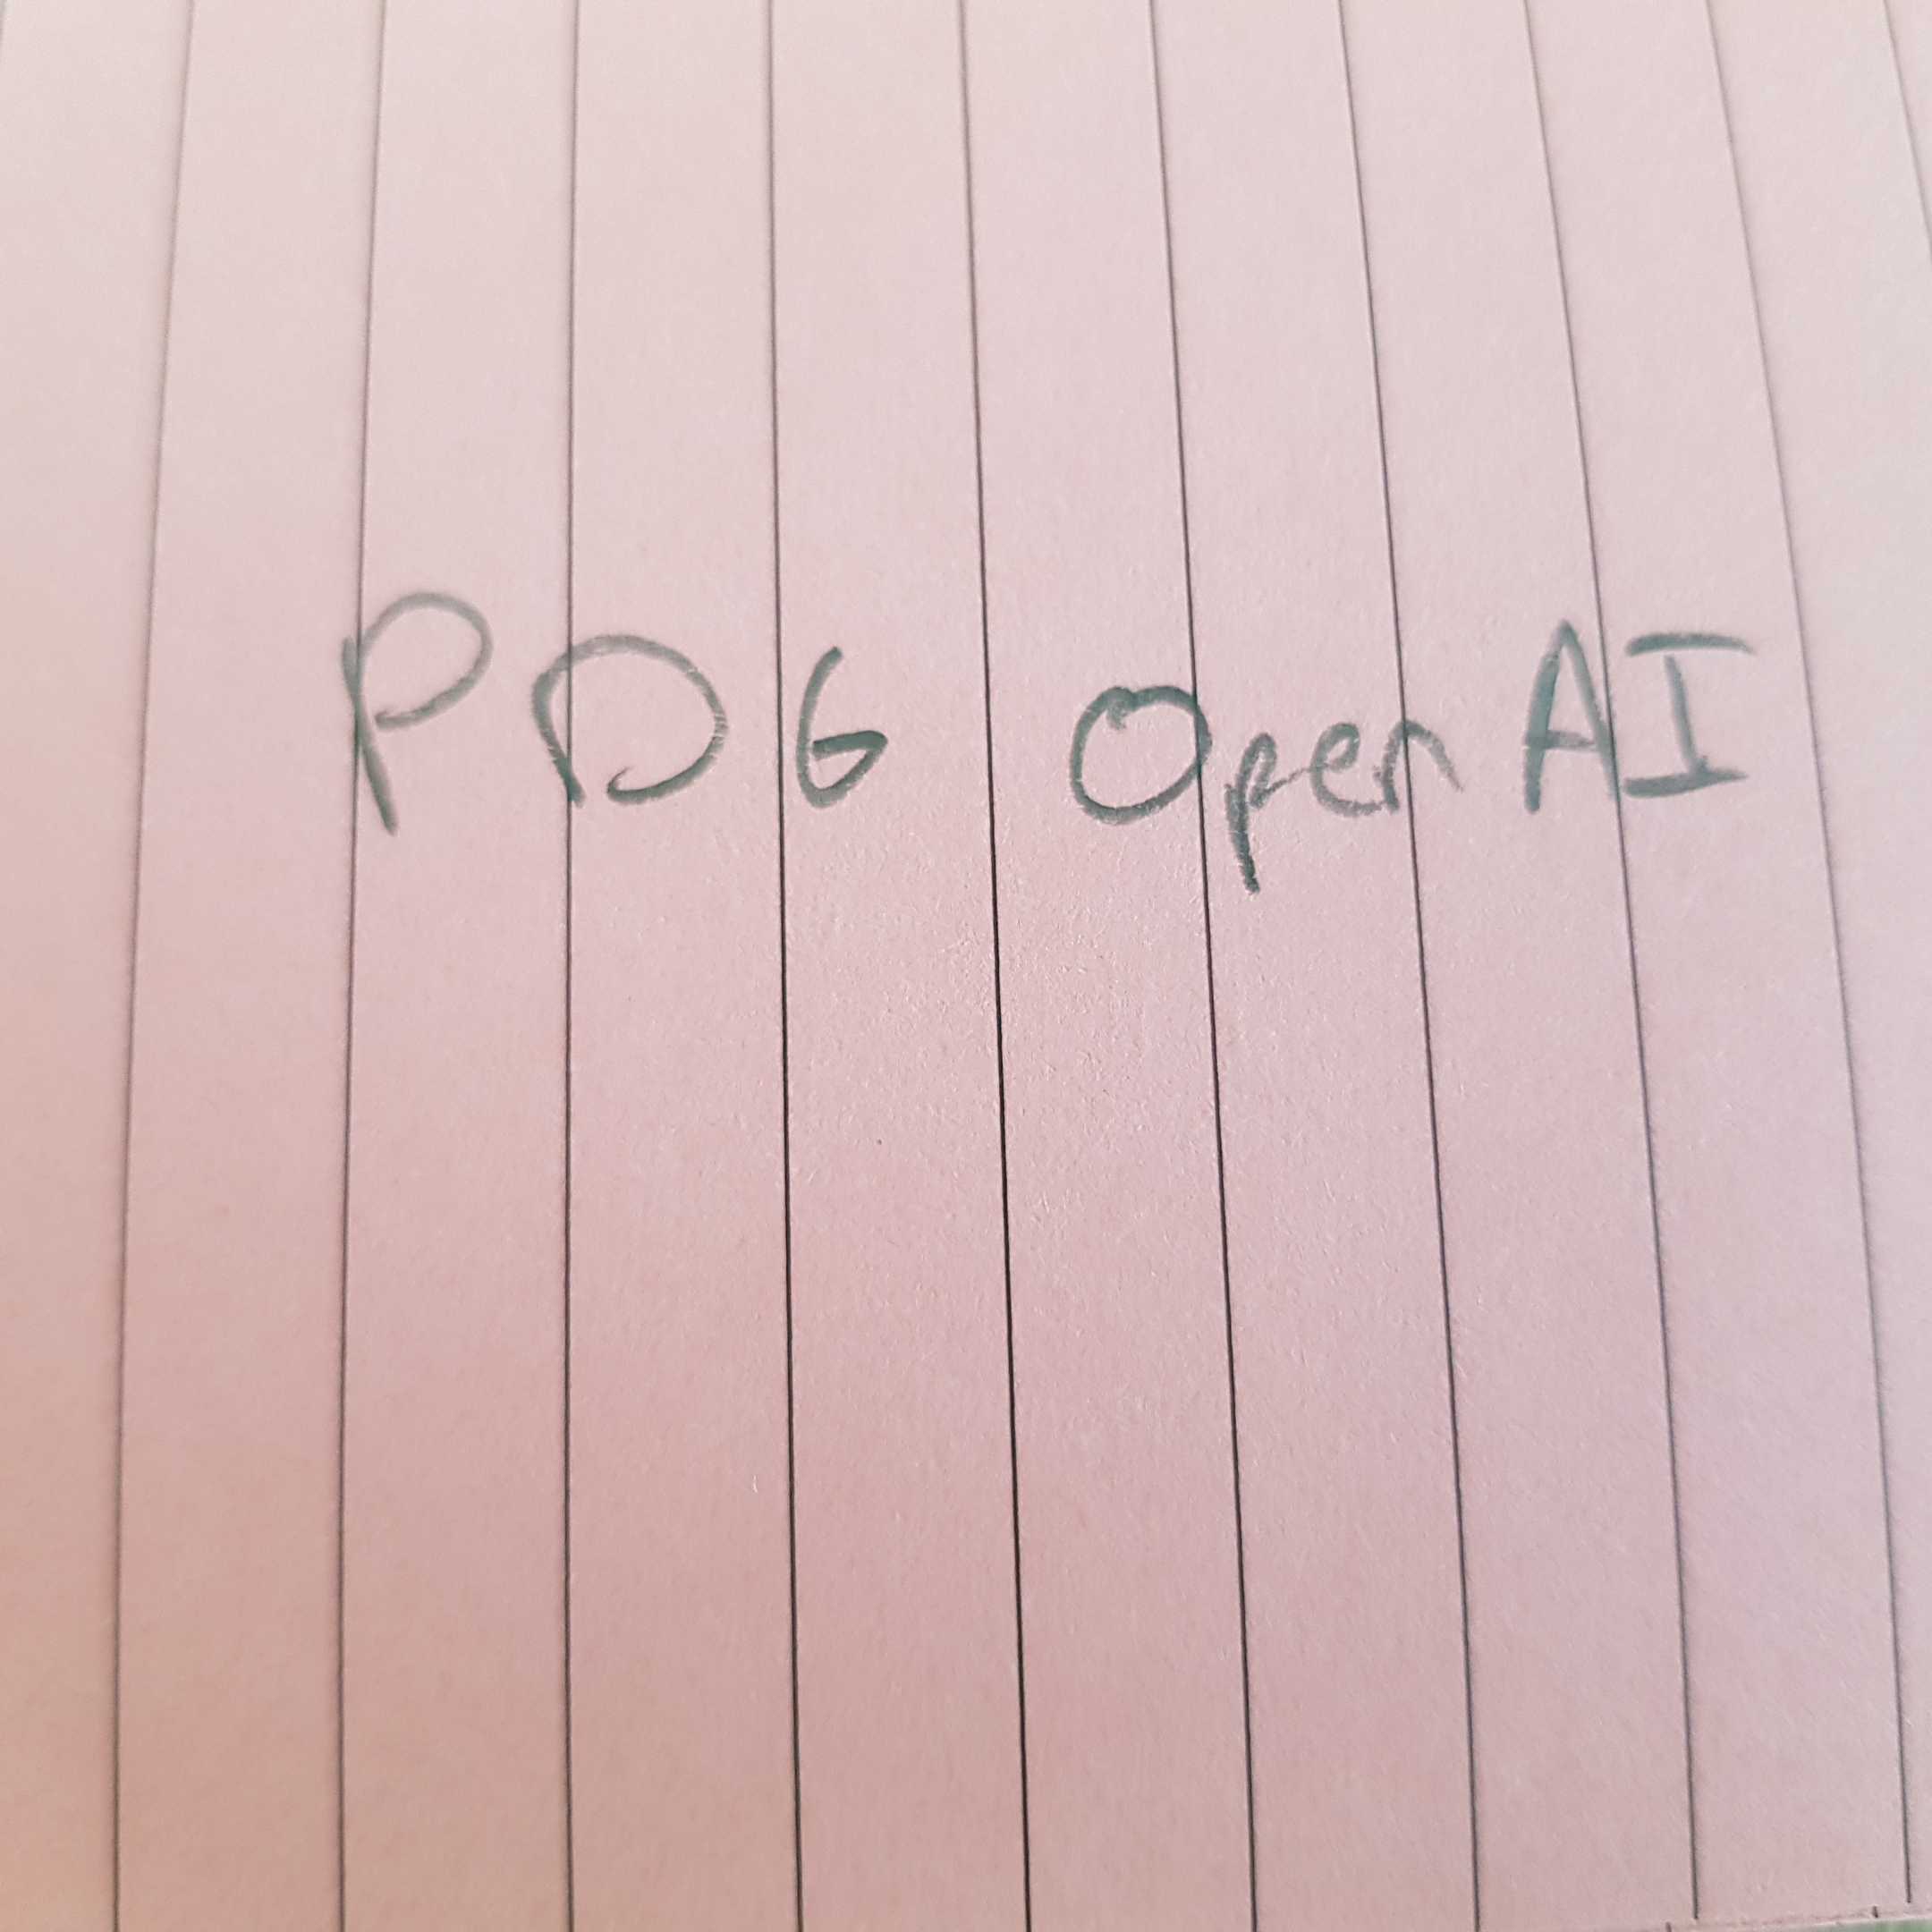 PDG OpenAI